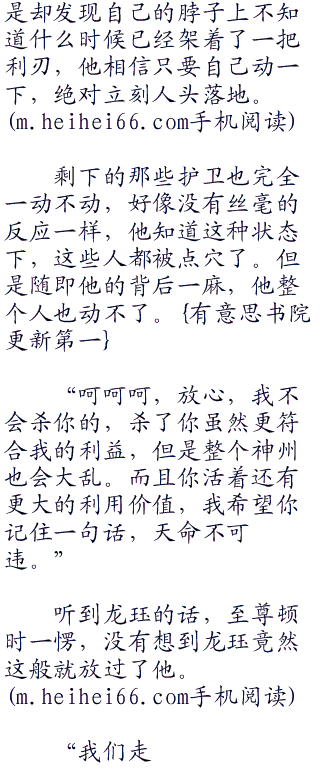 是却发现自己的脖子上不知
道什么时候已经架着了一把
利刃，他相信只要自己动一
下，绝对立刻人头落地。
(m.heihei66.com手机阅读)
剩下的那些护卫也完全
一动不动，好像没有丝毫的
反应一样，他知道这种状态
下，这些人都被点穴了。但
是随即他的背后一麻，他整
个人也动不了。{有意思书院
更新第一}
“呵呵呵，放心，我不
会杀你的，杀了你虽然更符
合我的利益，但是整个神州
也会大乱。而且你活着还有
更大的利用价值，我希望你
记住一句话，天命不可
违。”
听到龙珏的话，至尊顿
时一愣，没有想到龙珏竟然
这般就放过了他。
(m.heihei66.com手机阅读)
“我们走